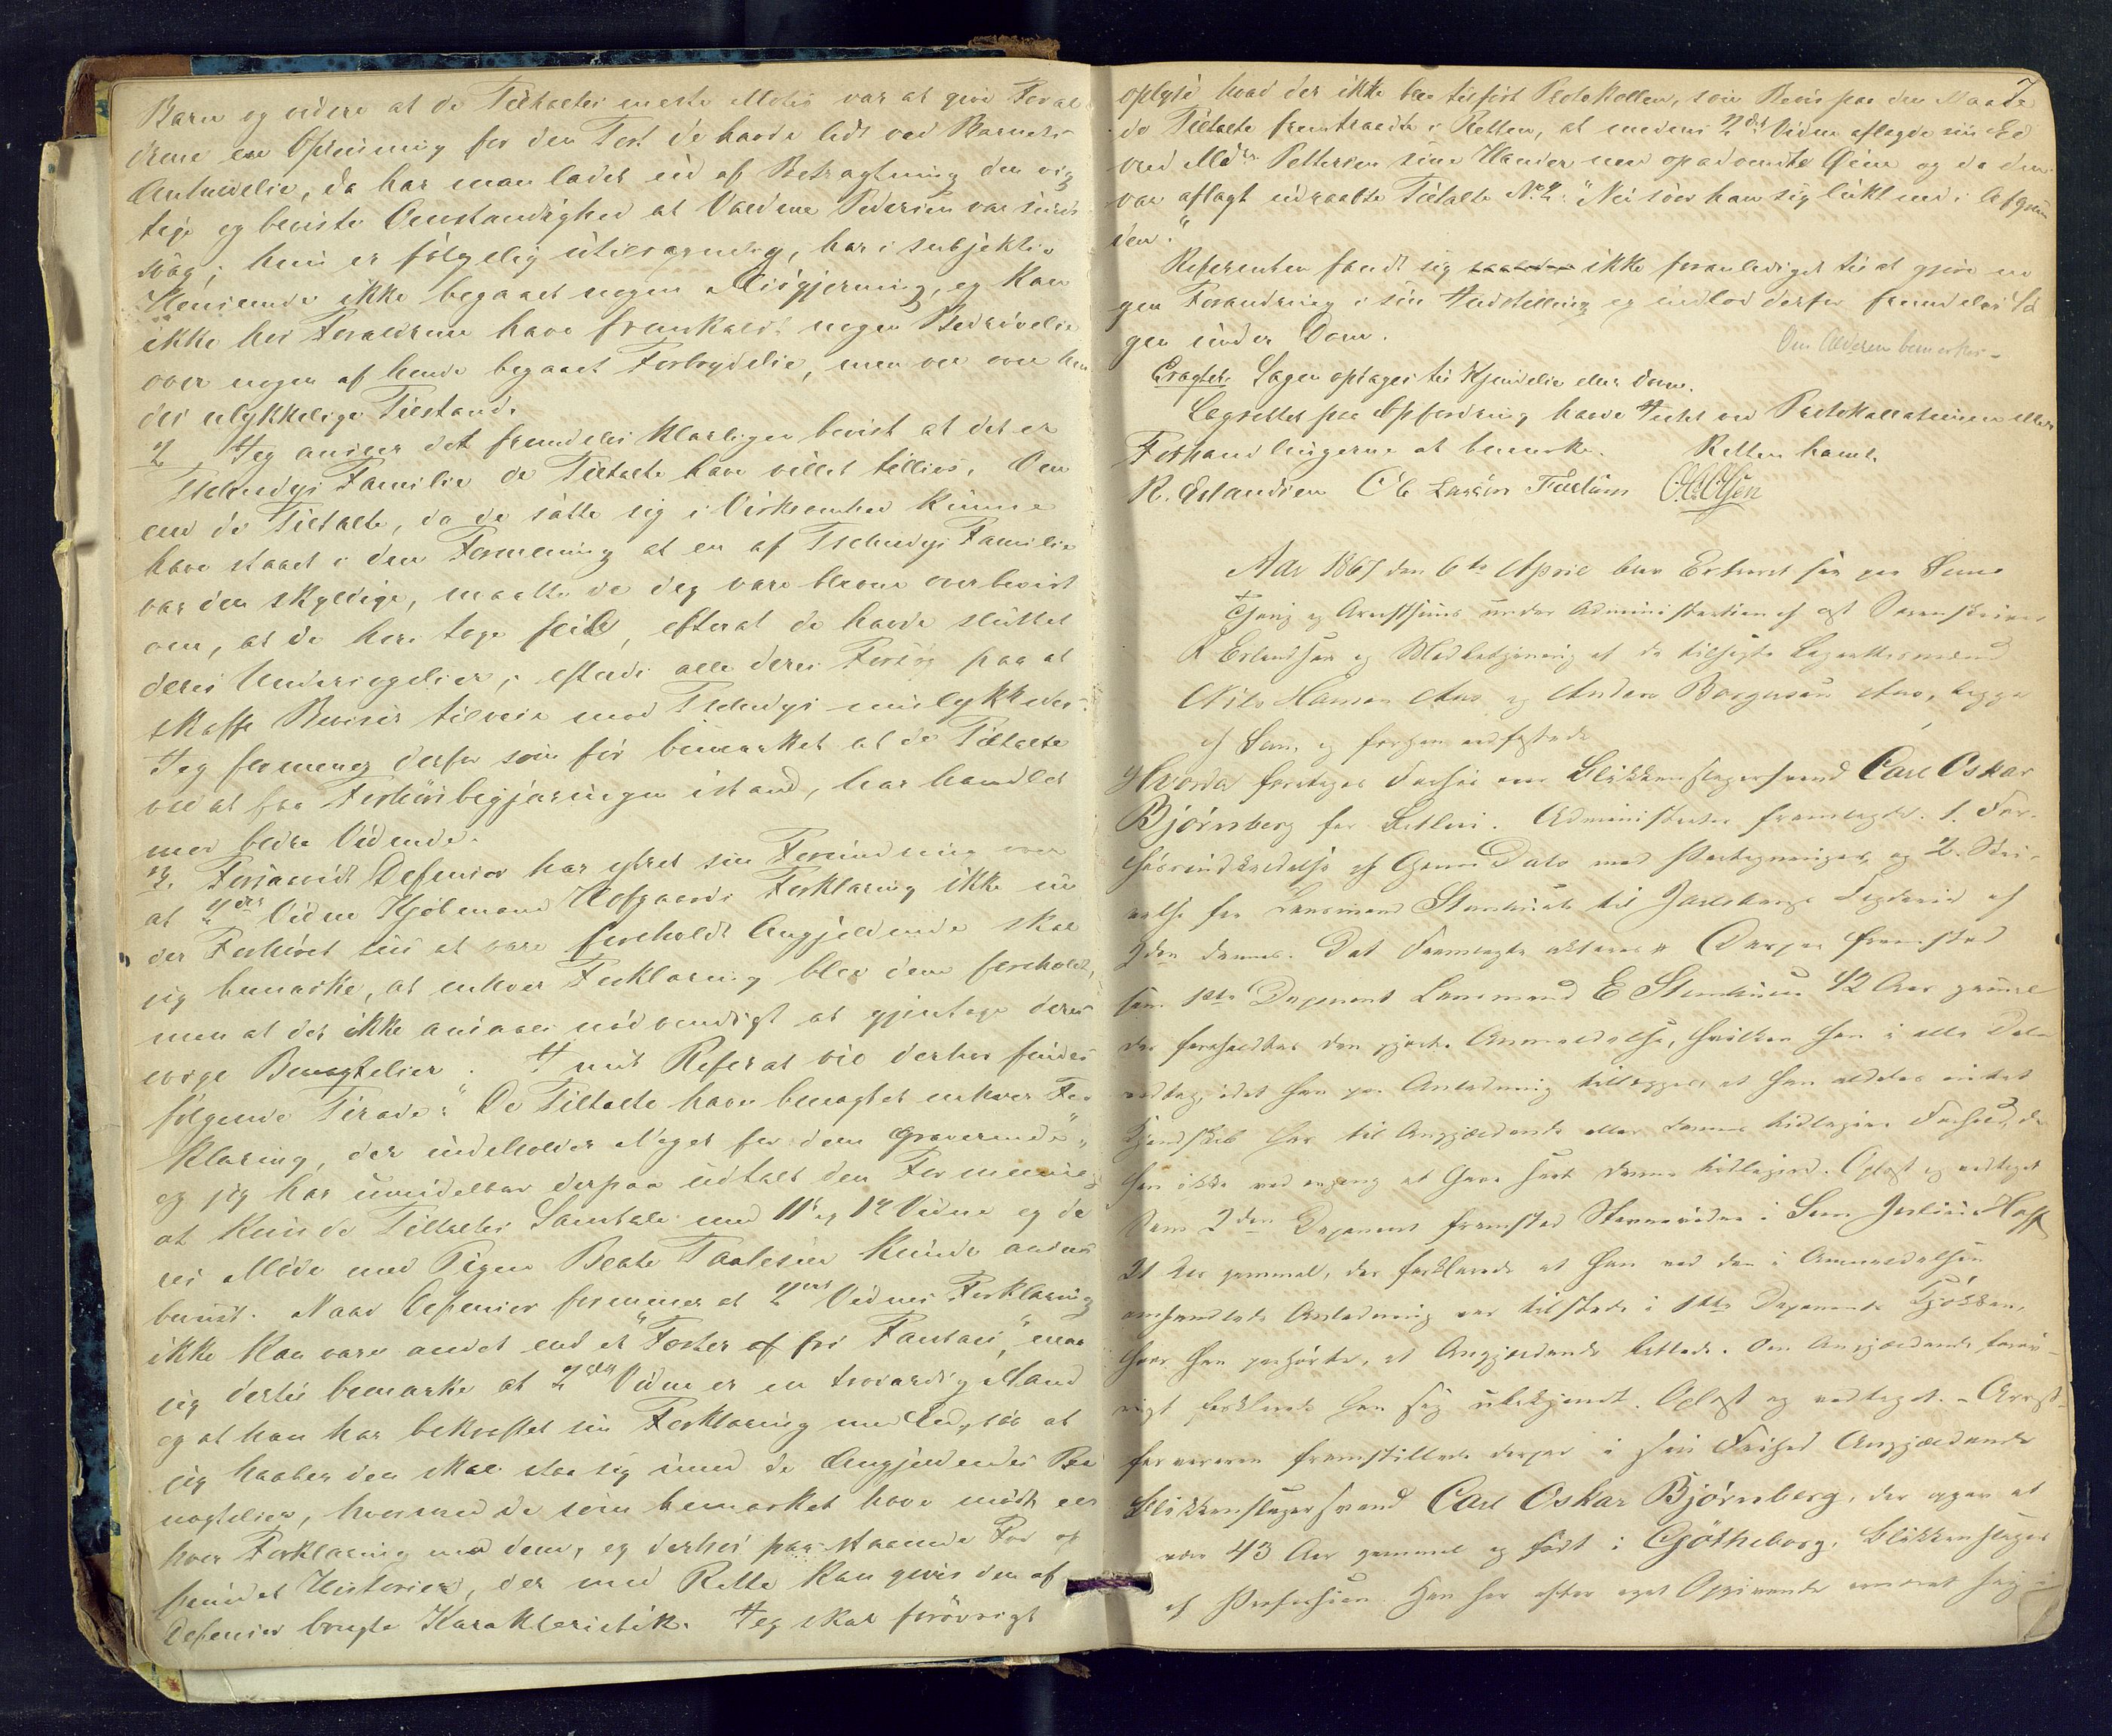 Barn og videre at de Tiltaltes meste Motiv var at give Foræl
drene en Opreisning for den Tort de havde lidt ved Barnets
Anholdelse, da har man ladet ud af Betragtning den vig
tige og beviste Omstændighed at Valdine Pedersen var sinds
svag; hun er følgelig utilregnelig, har i subjektiv
Henseende ikke begaaet nogen Misgjerning, og kan
ikke hos Forældrene have fremkaldt nogen Bedrøvelse
over nogen af hende begaaet Forbrydelse, men vel over hen
des ulykkelige Tilstand.
2 Jeg anseer det fremdeles klarligen bevist at det er
Tschudys Familie de Tiltalte have villet tillivs. Om
end de Tiltalte, da de satte sig i Virksomhed kunne
have staaet i den Formening at en af Tschudys Familie
var den skyldige, maatte de dog være blevne overbevist
om, at de heri toge feil, efterat de havde sluttet
deres Undersøgelser, efterdi alle deres Forsøg paa at
skaffe Beviser tilveie mod Tschudys mislykkedes.
Jeg formener derfor som før bemærket at de Tiltalte
ved at faa Forhørsbegjæringen istand, har handlet
mod bedre Vidende.
3. Forsaavidt Defensor har ytret sin Forundring over
at 2det Vidne Kjøbmand Hofgaards Forklaring ikke un
der Forhøret sees at være foreholdt Angjældende skal
jeg bemærke, at enhver Forklaring blev dem foreholdt,
men at det ikke ansaaes nødvendigt at gjentage deres
evige Benægtelser. I mit Referat vil derhos findes
følgende Tirade: "De Tiltalte have benægtet enhver For
klaring, der indeholder Noget for dem Graverende",
og jeg har umiddelbar derpaa udtalt den Formening
at kun de Tiltaltes Samtale med 11te og 12 Vidne og de
res Møde med Pigen Beate Paulsen kunde ansees
bevist. Naar Defensor formener at 2det Vidnes Forklaring
ikke kan være andet end et "Foster af fri Fantasi", maa
jeg dertil bemærke at 2det Vidne er en troværdig Mand
og at han har bekræftet sin Forklaring med Eed, saa at
jeg haaber den skal staa sig imod de Angjældendes Be
nægtelser, hvormed de som bemærket have mødt en
hver Forklaring mod dem, og derhos paastaaende For op
fundet Historier, der med Rette kan gives den af
Defensor brugte Karakteristik. Jeg skal forøvrigt
7
oplyse hvad der ikke blev tilført Protokollen, som Bevis paa den Maade
de Tiltalte fremtraadte i Retten, at medens 2det Vidne aflagde sin Ed
vred Mdm Pettersen sine Hænder med opadvendte Øine og da den
var aflagt udraabte Tiltalte No. 2: "Nei svor han sig lukt ned i Afgrun
den."
Referenten fandt sig ikke foranlediget til at gjøre no
gen Forandring i sin Indstilling og indlod derfor fremdeles Sa
gen under Dom.
Om Alderen bemærkes -
Eragtet: Sagen optages til Kjendelse eller Dom.
Lagrettet paa Opfordring havde Intet ved Protokollationen eller
Forhandlingerne at bemærke. Retten hævet.
R. Erlandsen Ole Larsen Fuglum O. A. Olsen
Aar 1867 den 6te April blev Extraret sat paa Sems
Thing og Arresthuus under Administration af cst Sorenskriver
R Erlandsen og Medbetjening af de tilsagte Lagrettesmænd
Nils Hansen Aas og Anders Borgersen Aas, begge
af Sem, og forhen edfæstede
Hvorda foretoges Forhør over Blikkenslagersvend Carl Oskar
Bjørnberg for Betleri. Administrator fremlagde. 1. For-
hørsindkaldelse af Gaars Dato med Paategninger, og 2. Skri-
velse fra Lensmand Stenhuus til Jarlsbergs Fogderie af
2den dennes. Det Fremlagte akteres. Derpaa fremstod
som 1ste Deponent Lensmand E Stenhuus 42 Aar gammel
der foreholdtes den gjorte Anmeldelse, hvilken han i alle Dele
vedtog, idet han paa Anledning tillægger, at han aldeles intet
Kjendskab har til Angjældende eller dennes tidligere Forhold, da
han ikke ved engang at have seet denne tidligere. Oplæst og vedtaget
Som 2den Deponent fremstod Stævnevidne i Sem Julius Hoff
31 Aar gammel, der forklarede at han ved den i Anmeldelsen
omhandlede Anledning var tilstede i 1ste Deponents Kjøkken,
hvor han paahørte, at Angjældende betlede. Om Angjældende forøv-
rigt forklarede han sig ubekjendt. Oplæst og vedtaget. - Arrest-
forvareren fremstillede derpaa i sin Frihed Angjældende
Blikkenslagersvend Carl Oskar Bjørnberg, der opgav at
være 43 Aar gammel og født i Gøtheborg, Blikkenslager
af Profession. Han har efter eget Opgivende ernæret sig